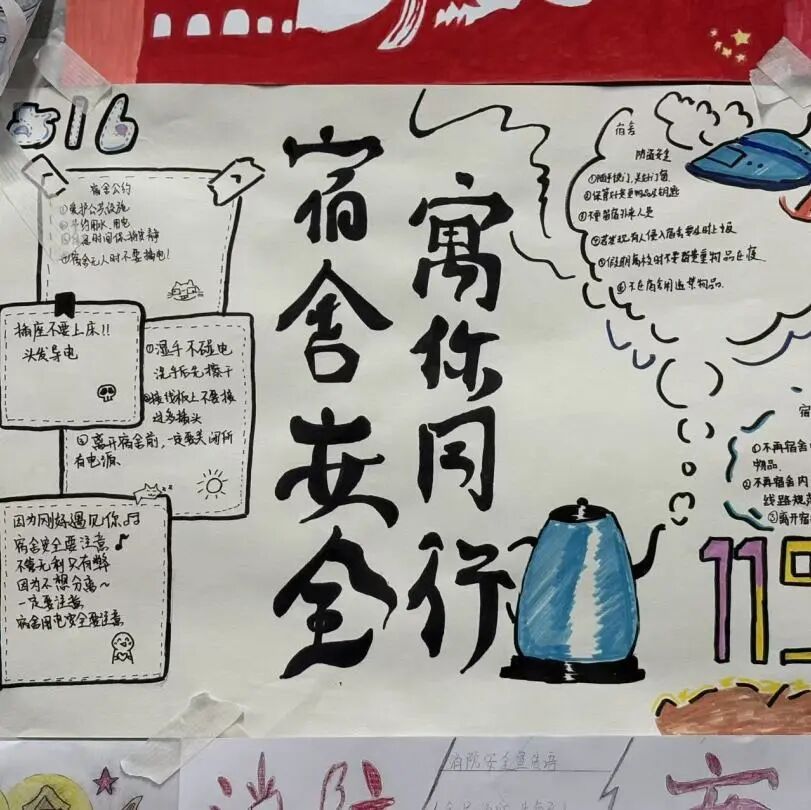 516
宿舍公约
①爱护公共设施
②节约用水、用电
④宿舍无人时不要插电！
插座不要上床!!
头发导电
①湿手不碰电
洗手后先擦干
②接线板上不要接
过多插头
③离开宿舍前，一定要关闭所
有电源.
因为刚好遇见你
宿舍安全要注意
不需无利只有弊
因为不想分离~
一定要注意
宿舍用电安全要注意
宿舍安全
寓你同行
宿舍
防盗安全
①随手锁门，关好门窗
②保管好贵重物品及钥匙
③不要留宿外来人员
④若发现有人侵入宿舍要及时上报
⑤假期离校时不要留贵重物品在寝
宿
①不再宿舍
物品.
②不再宿舍内
线路
③离开宿
119
消防
消防安全宣传语